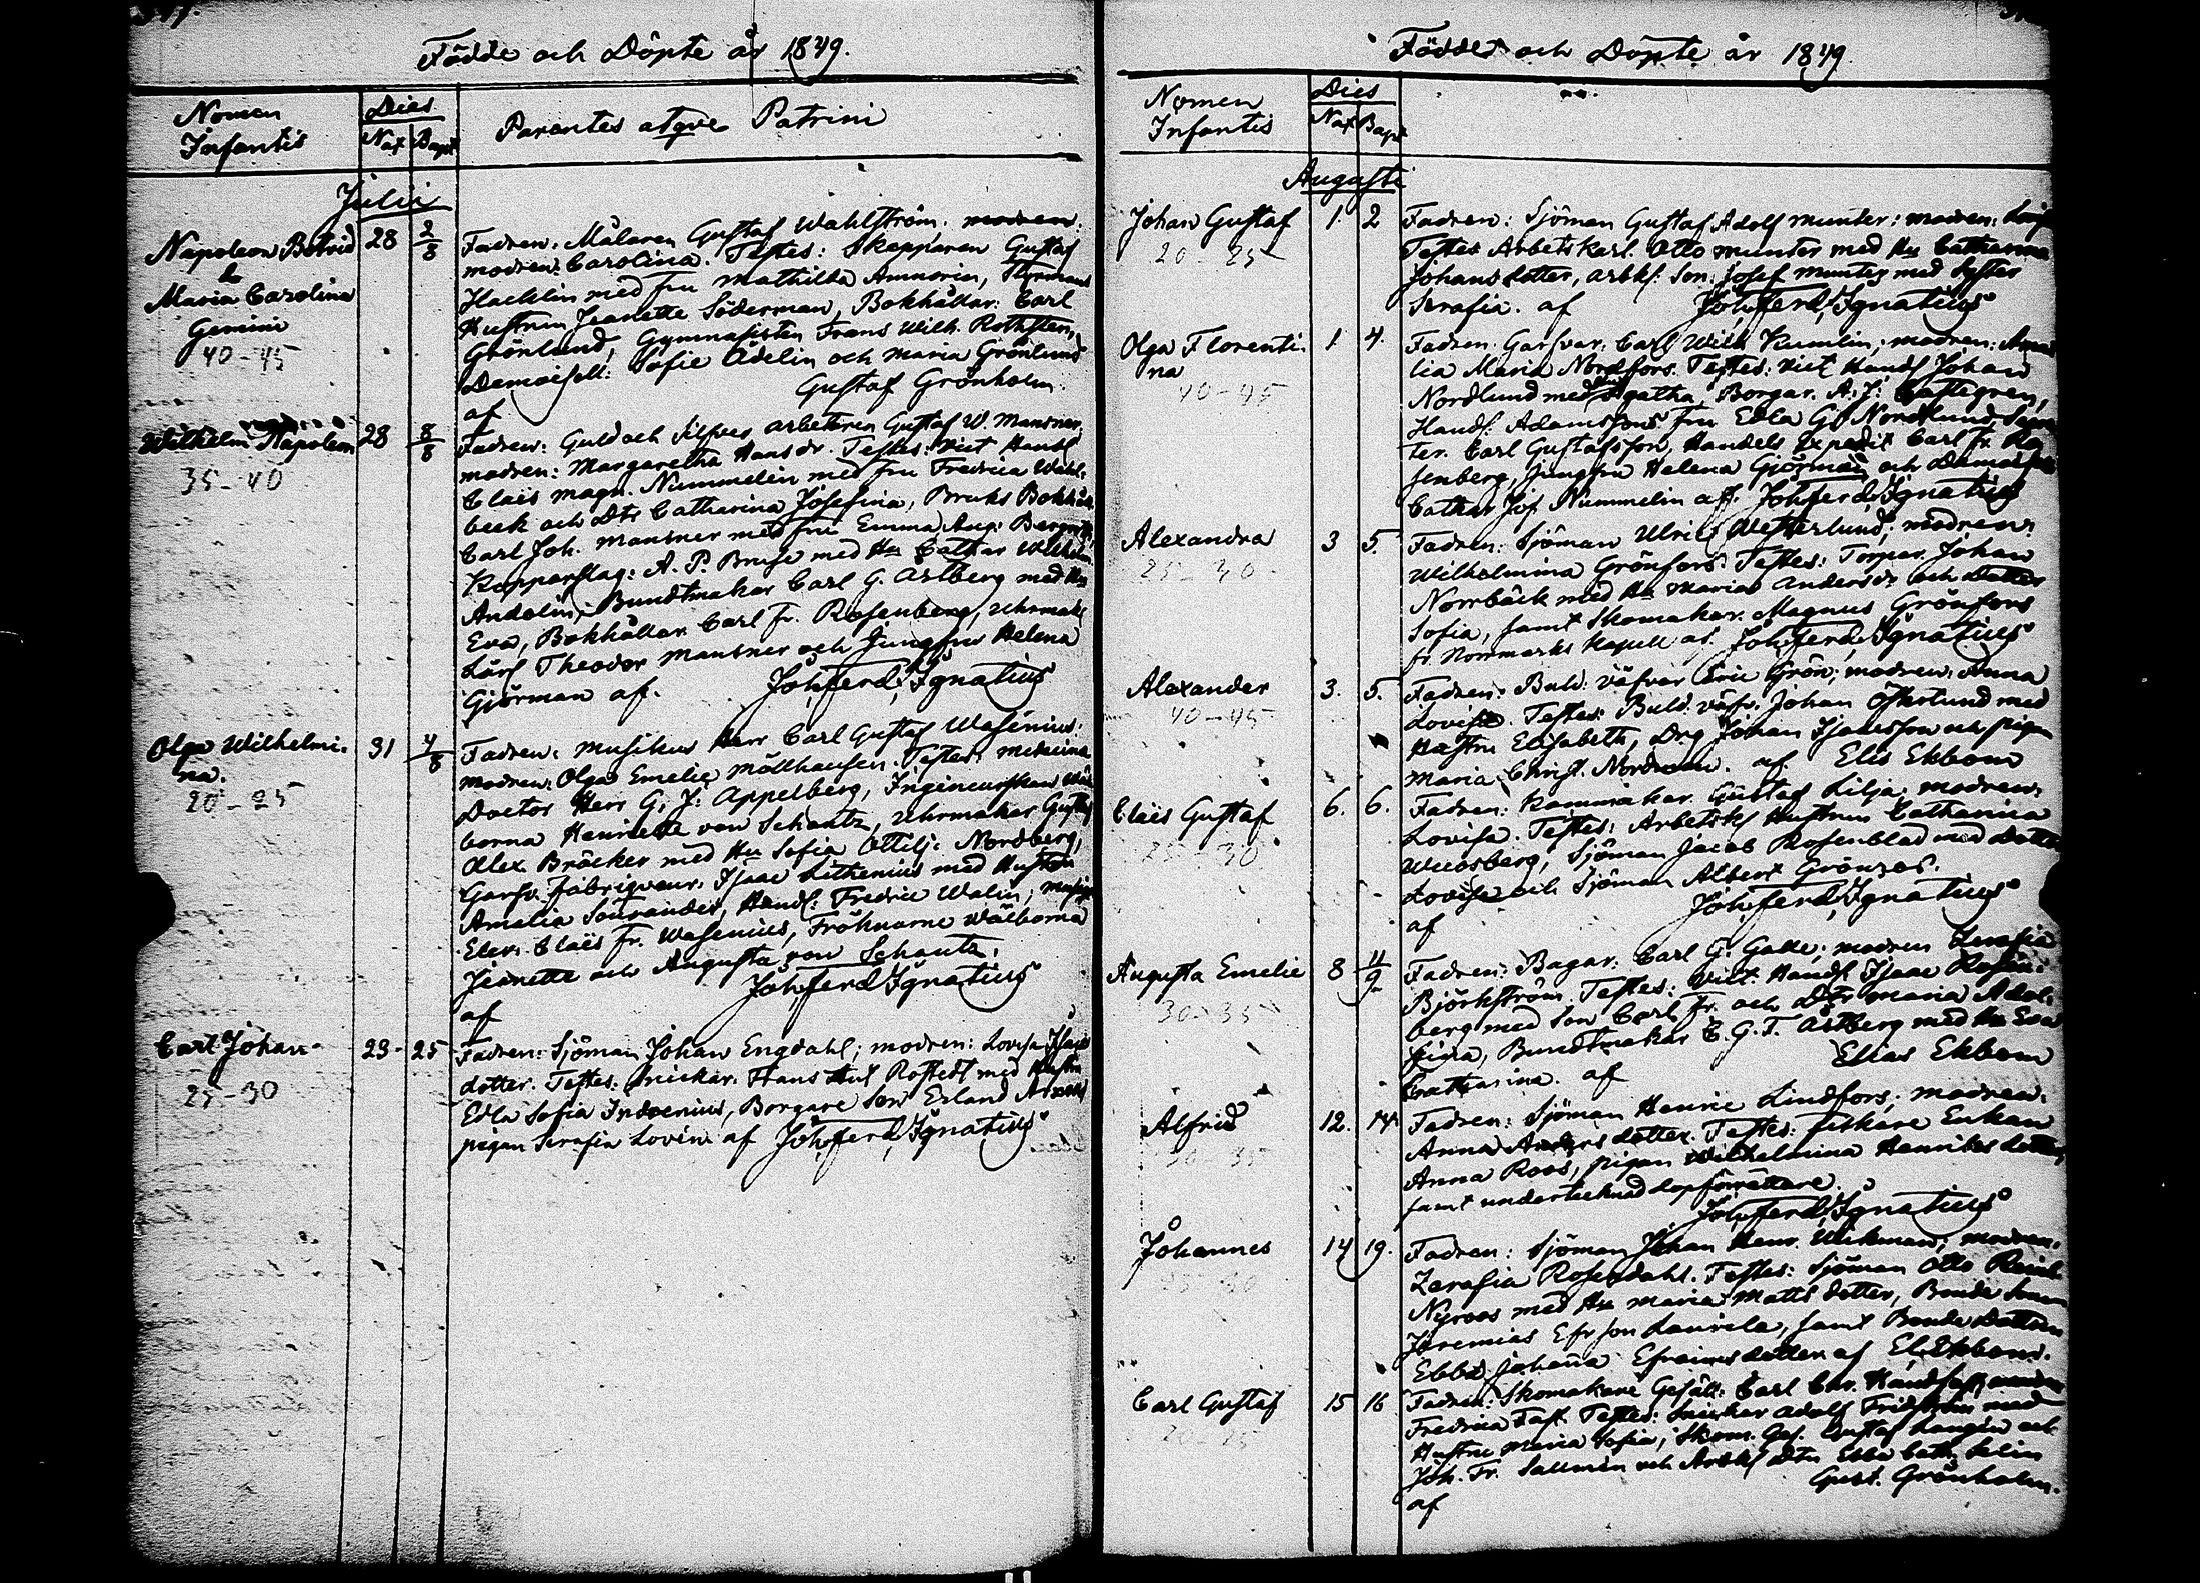 Födde och Döpte år 1849.
Nomen
Infantis
Dies
Nat Bapt
Parentes atqve Patrini
Julii
Napoleon Betrid
&
Maria Carolina
Gemini
40-45
28 2/8
Fadren: Målaren Gustaf Wahlström, modren:
modren: Carolina. Testes: Skepparen Gustaf
Hacklin med fru Mathilda Amnorin, Styrmans
Hustrun Jeanette Söderman, Bokhållar. Carl
Grönlund, Gymnasisten Frans Wilh. Rothsten,
Demoisell: Sofie Ädelin och Maria Grönlund
af Gustaf Grönholm.
Wilhelm Napoleon
35-40
28 8/8
Fadren: Guld och Silfver arbetaren Gustaf W. Mansner,
modren: Margaretha Hansdr. Testes: Vict Handl
Claës Magn. Nummelin med fru Fredrica Wahl-
beck och Dtr Catharina Josefina, Bruks Bokhåll
Carl Joh. Mansner med fru Emma Aug:
Kopparslag: A. P. Bruse med Hu Cathar Wilhelm.
Andelin, Bundtmakar Carl G. Åstberg med Hu
Eva, Bokhållar Carl Fr. Rosenberg, Uhrmak
Lärl Theodor Mansner och Jungfru Helena
Gjörman af. Joh. Ferd. Ignatius
Olga Wilhelmi-
na.
20-25
31 4/8
Fadren: Musikus Herr Carl Gustaf Wasenius,
modren: Olga Emelie Möllhausen. Testes: Medicinæ
Doctor Herr G. J: Appelberg, Ingenieurskan Wäl
borna Henriette von Schantz, Uhrmakar Gustaf
Alex. Bräcker med Hu Sofia Ottilj: Nordberg,
Garfv. Fabriqveur. Isaac Lithenius med Hustru
Amalia Sourander, Handl: Fredric Walin, Musik
Elev. Claës Fr. Wasenius, Fröknarne Wälborna
Jeanette och Augusta von Schantz.
af Joh. Ferd. Ignatius
Carl Johan
25-30
23 - 25
Fadren: Sjöman Johan Engdahl; modren: Lovisa Isacs
dotter. Testes: Snickar. Hans Rostedt med Hustru
Edla Sofia Indrenius, Borgare Son Erland
pigan Serafia Lovén af Joh. Ferd. Ignatius
Födde och Döpte år 1849.
Nomen
Infantis
Dies
Nat Bapt
Augusti
Johan Gustaf
20-25
1. 2
Fadren: Sjöman Gustaf Adolf Munter; modren: Lovisa
Testes Arbetskarl. Otto Munter med Hu Catharina
Johansdotter, Arbkl. Son: Josef Munter med Syster
Serafia. af Joh. Ferd. Ignatius
Olga Florenti-
na
40-45
1. 4.
Fadren: Garfvar. Carl Wilh Kumlin, modren: Ama
lia Maria Nordfors. Testes: Vict Handl Johan
Nordlund med Agatha, Borgar. A. J: Castegren,
Handl: Adamssons Fru Edla G. Nordlund,
ter. Carl Gustafsson, Handels Expedit Carl Fr. Ro
senberg, Jungfru Helena Gjörman och Demoiselle
Cathar Jos. Nummelin af. Joh. Ferd. Ignatius
Alexandra
25-30
3 5.
Fadren: Sjöman Ulric Westerlund, modren:
Wilhelmina Grönfors. Testes: Torpar. Johan
Norrbäck med Hu Maria Andersdr och Dotter
Sofia, samt Skomakar. Magnus Grönfors
fr. Norrmarks Kapell af. Joh. Ferd. Ignatius
Alexander
40-45
3. 5.
Fadren: Buld. väfvar Eric Grön; modren: Anna
Lovisa. Testes: Buld. väfv. Johan Österlund med
Hustru Elisabeth, Drg Johan Isacsson och pigan
Maria Christ. Nordman. af Elis Ekbom
Claës Gustaf
25-30
6. 6.
Fadren: Kammakar Gustaf Lilja, modren:
Lovisa. Testes: Arbetskl Hustrun Catharina
Widsberg, Sjöman Jacob Rosenblad med Dotter
Lovisa och Sjöman Albert Grönroos.
af Joh. Ferd. Ignatius
Augusta Emelie
30-35
8 11/9
Fadren: Bagar. Carl G. Galle; modren Serafia
Björkström. Testes: Vict. Handl Isaac Rosen-
berg med Son Carl Fr. och Dtr Maria Adol-
fina, Bundtmakar C. G. T. Åstberg med Hu Eva
Catharina. af Elias Ekbom
Alfrid
30-35
12. 14.
Fadren: Sjöman Henric Lindfors, modren:
Anna Andersdotter. Testes: Fiskare Enkan
Anna Roos, pigan Wilhelmina Henriksdotter,
samt undertecknad dopförrättare.
Joh. Ferd. Ignatius
Johannes
14 19.
Fadren: Sjöman Johan Henr. Wickman, modren:
Zerafia Rosendahl. Testes: Sjöman Otto Reinh
Nyroos med Hu Maria Mattsdotter, Bonde Sonen
Jeremias Efrson Laurila, samt Bonde Dottren
Ebba Johanna Efraimsdotter af El. Ekbom.
Carl Gustaf
20-25
15 16
Fadren: Skomakare Gesäll: Carl Chr. modren
Fredrica Fast. Testes: Snickar Adolf Fridström med
Hustru Maria Sofia, Skom. Ges. Gustaf Langén och
Joh. Fr. Sallmén och Arbkl Dtr Ebba Cath. Selin
af Gust. Grönholm.